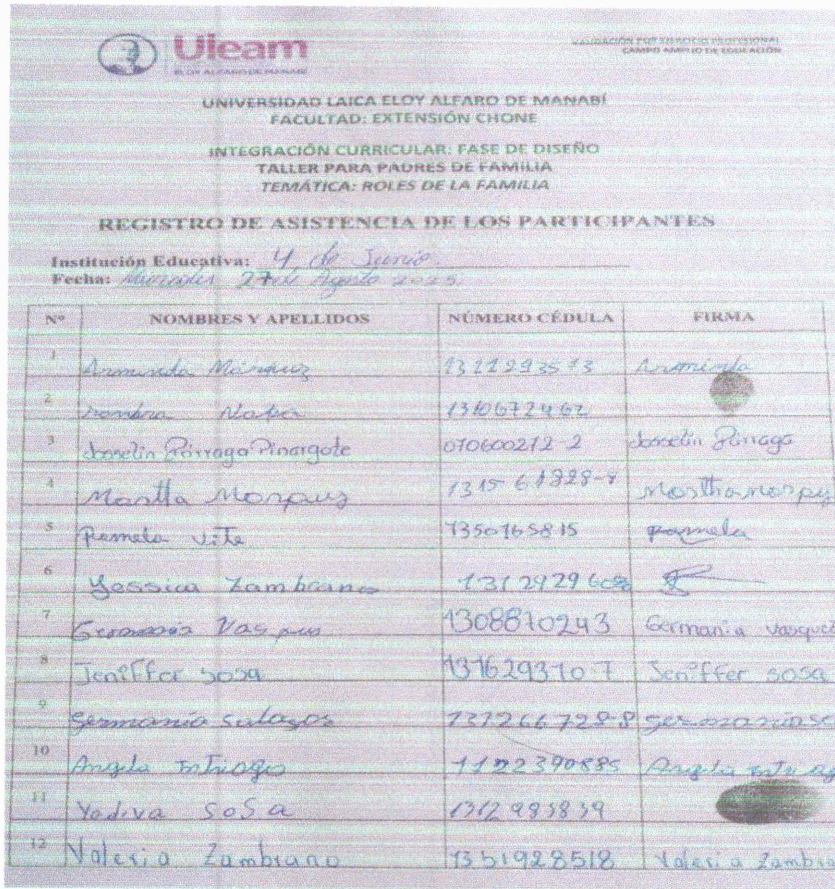 Uleam
ELOY ALFARO DE MANABÍ
VALIDACIÓN POR EJERCICIO PROFESIONAL
CAMPO AMPLIO DE EDUCACIÓN
UNIVERSIDAD LAICA ELOY ALFARO DE MANABÍ
FACULTAD: EXTENSIÓN CHONE
INTEGRACIÓN CURRICULAR: FASE DE DISEÑO
TALLER PARA PADRES DE FAMILIA
TEMÁTICA: ROLES DE LA FAMILIA
REGISTRO DE ASISTENCIA DE LOS PARTICIPANTES
Institución Educativa: 4 de Junio
Fecha: Miercoles 27 de Agosto 2025.
Nº NOMBRES Y APELLIDOS NÚMERO CÉDULA FIRMA
1 Arminda Márquez Arminda
2 1310672462
3 Josselin Párraga Pinargote 070600212-2 Josselin Párraga
4 Martha
5 Pamela Vite 1350165815 Pamela
6 Yessica Zambrano
7 1308810243 Germania Vasquez
8 Jeniffer Sosa 131629310-7 Jeniffer Sosa
9 Germania 131266728-8
10 Angela Intriago 1122390885 Angela
11 Yadiva Sosa 1312983839
12 Valeria Zambrano 1351928518 Valeria Zambra